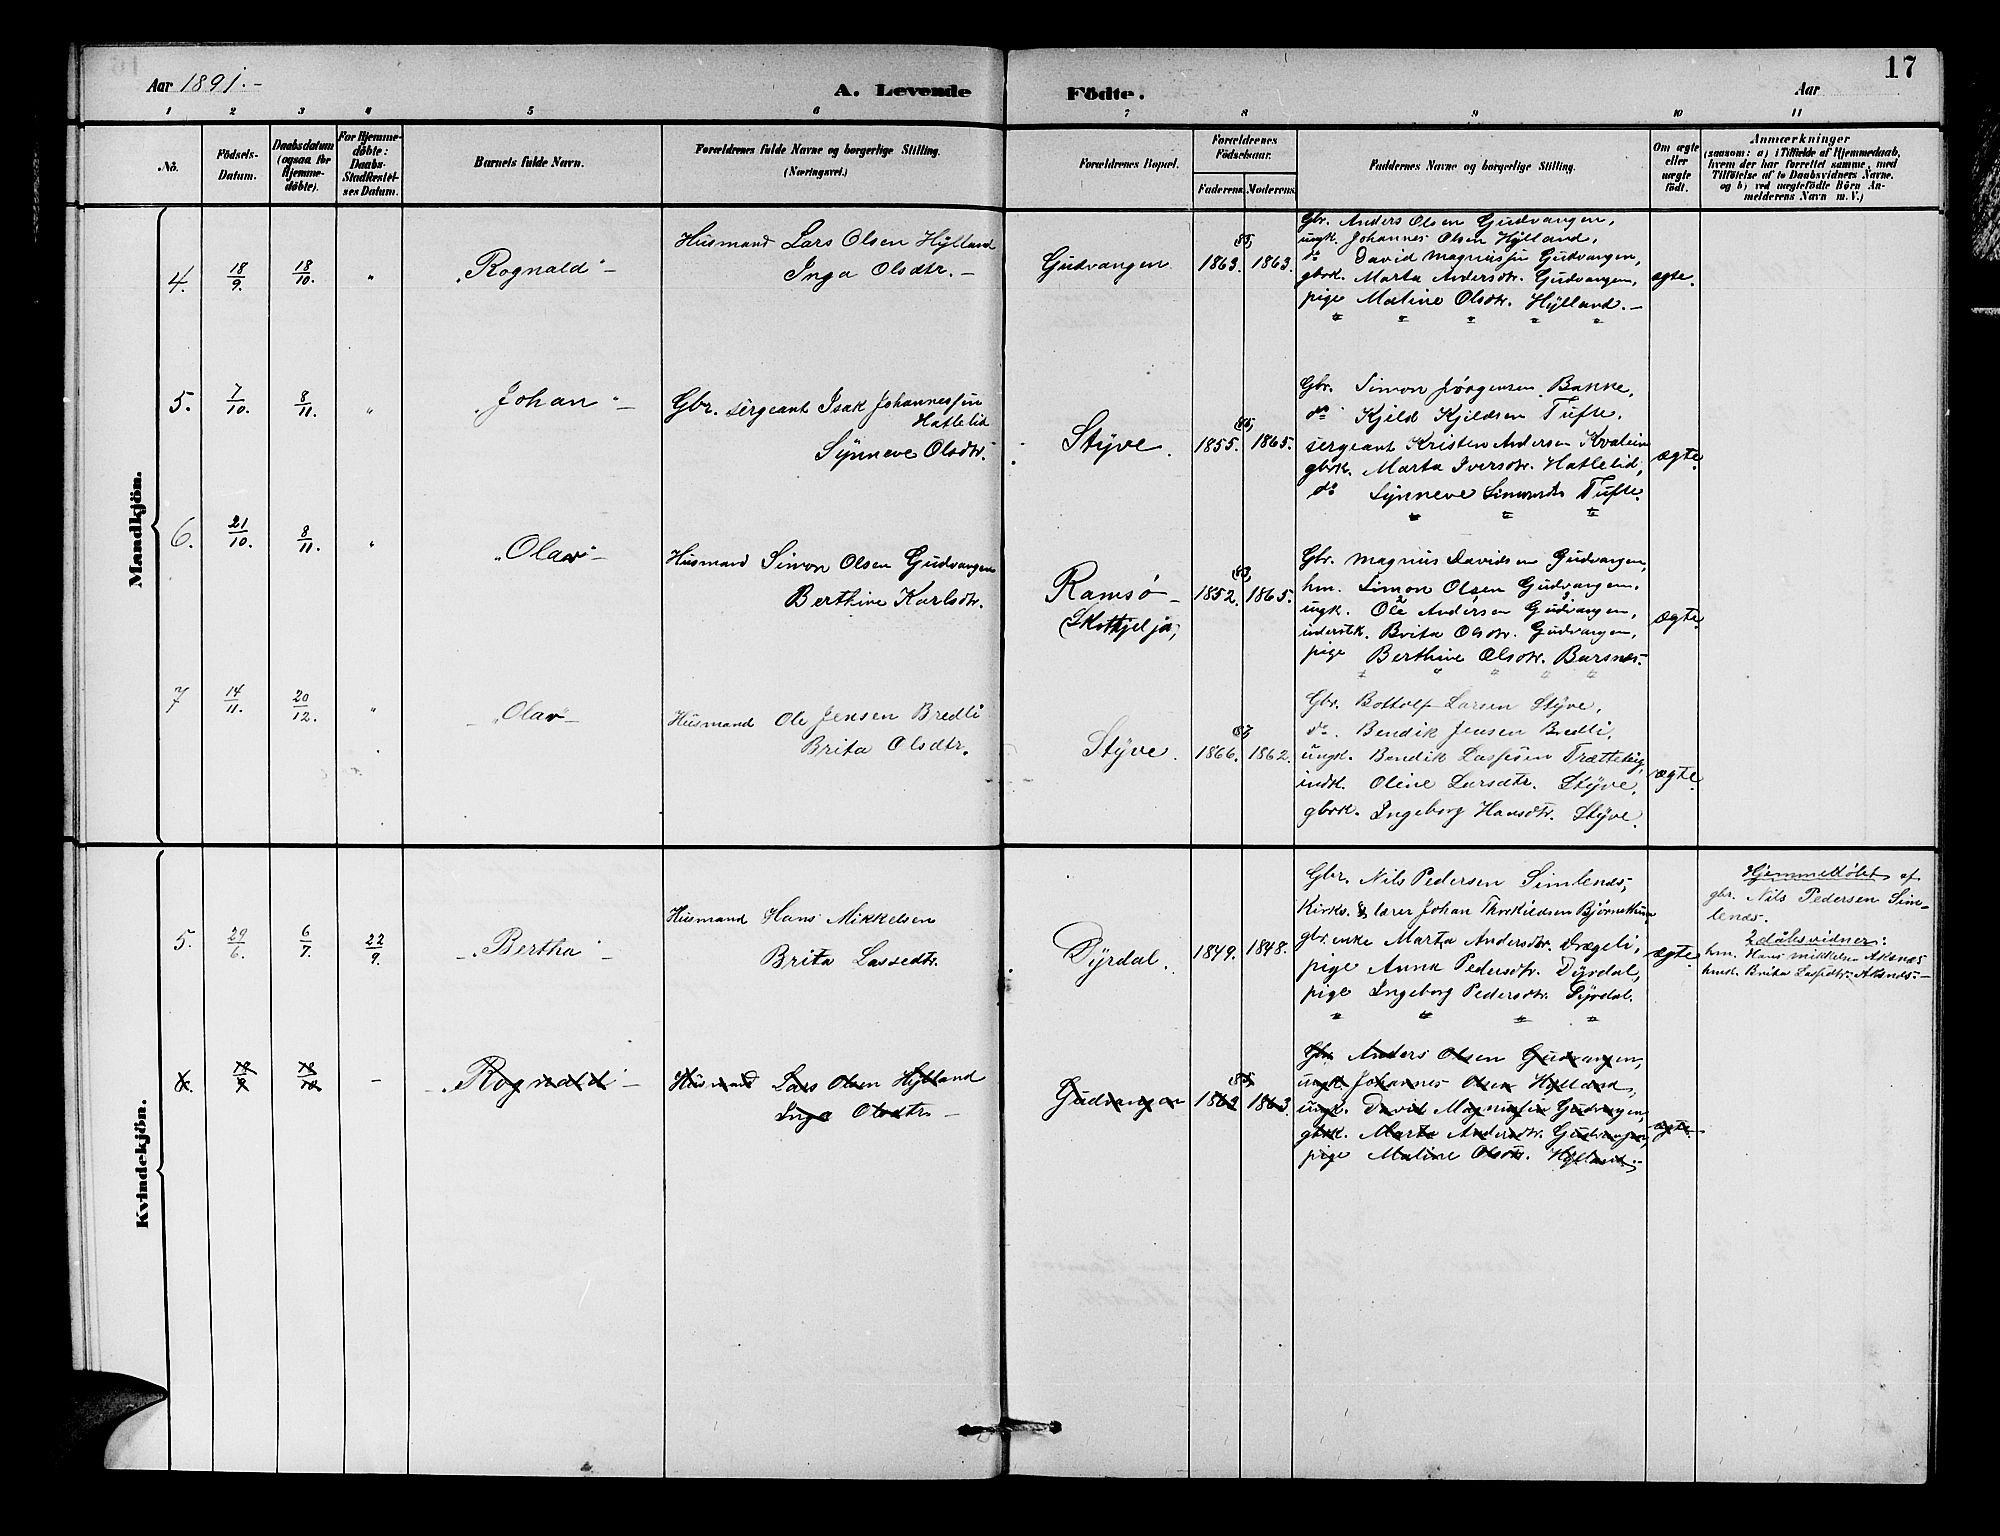 Aar 1891.-
A. Levende Födte.
Aar
17
1 2 3 4 5 6 7 8 9 10 11
No.
Födsels-Datum.
Daabsdatum (ogsaa for Hjemmedöbte).
For Hjemmedöbte: Daabs-Stadfæstelses Datum.
Barnets fulde Navn.
Forældrenes fulde Navne og borgerlige Stilling. (Næringsvei.)
Forældrenes Bopæl.
Forældrenes Födselsaar.
Faderens. Moderens.
Faddernes Navne og borgerlige Stilling.
Om ægte eller uægte födt.
Anmærkninger
(saasom: a) i Tilfælde af Hjemmedaab, hvem der har forrettet samme, med Tilföielse af to Daabsvidners Navne, og b) ved uægtefödte Börn Anmelderens Navn m. V.)
Mandkjön.
4. 18/9 18/10. "
"Rognald" -
Husmand Lars Olsen Hylland
Inga Olsdtr. -
Gudvangen.
1863. 1863.
Gbr. Anders Olsen Gudvangen,
ungk. Johannes Olsen Hylland,
do David Magnussen Gudvangen,
gbrk. Marta Andersdtr. Gudvangen,
pige Maline Olsdtr. Hylland. -
ægte.
5. 7/10. 8/11. "
"Johan" -
Gbr. sergeant Isak Johannessen
Hatlelid
Synneve Olsdtr.
Styve.
1855. 1865.
Gbr. Simon Jørgensen Bakke,
do Kjeld Kjeldsen Tufte,
sergeant Kristen Andersen Kvalein
gbrk. Marta Iversdtr. Hatlelid,
do Synneve Simonsdtr. Tufte.
ægte.
6. 21/10. 8/11. "
"Olav" -
Husmand Simon Olsen Gudvangen
Berthine Karlsdtr.
Ramsø -
1852. 1865.
Gbr. Magnus Davidsen Gudvangen,
hm. Simon Olsen Gudvangen.
ungk. Ole Andersen Gudvangen,
Brita Olsdtr. Gudvangen,
pige Berthine Olsdtr. Barsnes.
ægte.
7 14/11. 20/12. "
- "Olav" -
Husmand Ole Jensen Bredli
Brita Olsdtr.
Styve.
1866. 1862.
Gbr. Bottolf Larsen Styve,
do. Bendik Jensen Bredli,
ungk. Bendik Lassesen
Oline Larsdtr. Styve,
gbrk. Ingeborg Hansdtr. Styve.
ægte.
Kvindekjön.
5. 29/6. 6/7. 22/9.
- "Bertha" -
Husmand Hans Mikkelsen
Brita Lassedtr.
Dyrdal.
1849. 1848.
Gbr. Nils Pedersen Simlenæs,
Kirks. & lærer Johan Thorkildsen
gbr.enke Marta Andersdtr. Drægeli,
pige Anna Pedersdtr. Dyrdal,
pige Ingeborg Pedersdtr. Dyrdal.
ægte.
Hjemmedøbt af
gbr. Nils Pedersen Sim-
lenæs.
2 dåbsvidner:
hm. Hans Mikkelsen Aksnæs
hmk. Brita Lassedtr. Aksnæs. -
6. 18/9 18/10 -
- "Rognald" -
Husmand Lars Olsen Hylland
Inga Olsdtr. -
Gudvangen
1863 1863.
Gbr. Anders Olsen Gudvangen,
ungk. Johannes Olsen Hylland,
ungk. David Magnussen Gudvangen,
gbrk. Marta Andersdtr. Gudvangen,
pige Maline Olsdtr. Hylland. -
ægte.